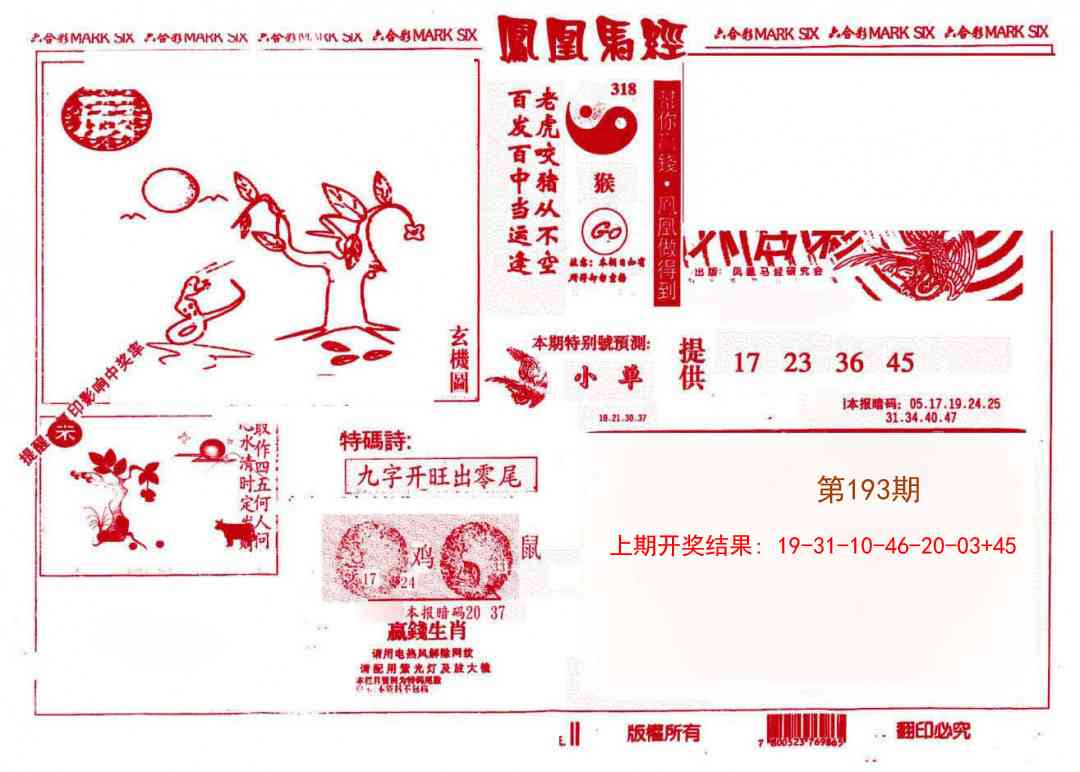 六合彩MARK SIX 六合彩MARK SIX 六合彩MARK SIX 六合彩MARK SIX
鳳凰馬經
六合彩MARK SIX 六合彩MARK SIX 六合彩MARK SIX
318
老虎咬猪从不空
百发百中当运逢
猴
Go
你 錢·鳳凰做得到
出版：凤凰马经研究会
玄機圖
本期特别號預測:
小 单
18.21.30.37
提供
17 23 36 45
本报暗码：05.17.19.24.25
31.34.40.47
提醒 印影响中奖率
取作四五何人问
心水清时定
特碼詩:
九字开旺出零尾
17 24 鸡 33 鼠
本报暗码20 37
贏錢生肖
请用电热风解除网纹
请配用紫光灯及放大镜
第193期
上期开奖结果：19-31-10-46-20-03+45
版權所有
7 800523 769865
翻印必究